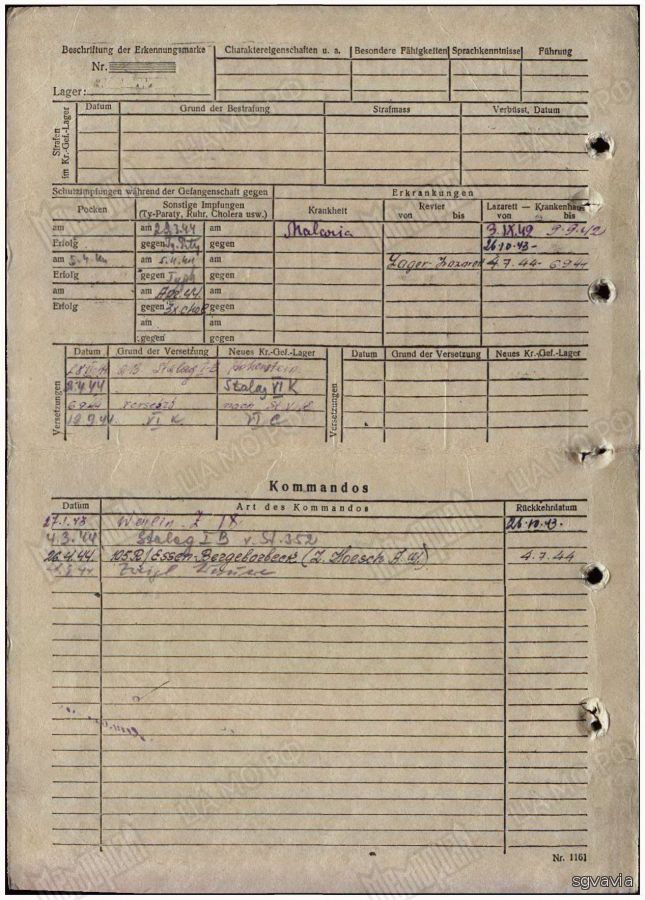 Beschriftung der Erkennungsmarke
Nr.
Lager:
Charaktereigenschaften u. a. Besondere Fähigkeiten Sprachkenntnisse Führung
Strafen im Kr.-Gef.-Lager
Datum Grund der Bestrafung Strafmass Verbüsst, Datum
Schutzimpfungen während der Gefangenschaft gegen Erkrankungen
Pocken Sonstige Impfungen (Ty-Paraty, Ruhr, Cholera usw.) Krankheit Revier von bis Lazarett — Krankenhaus von bis
am am am Malaria
Erfolg gegen gegen 26.10.43-
am 5.4.44 am 5.4.44 am Lager-Lazarett 4.7.44- 6.9.44
Erfolg gegen gegen
am am am
Erfolg gegen gegen
am am
gegen gegen
Versetzungen
Datum Grund der Versetzung Neues Kr.-Gef.-Lager
Stalag I-B Hohenstein
Stalag VI K
6.9.44 versetzt nach St.
VI K VI C
Versetzungen
Datum Grund der Versetzung Neues Kr.-Gef.-Lager
Kommandos
Datum Art des Kommandos Rückkehrdatum
27.1.43 IX 26.10.43.
4.3.44 Stalag I B v. St. 352
26.4.44. 105 R/Essen-Bergeborbeck (Z. Hoesch A.W.) 4.7.44
Nr. 1161
ЦАМО РФ
sgvavia